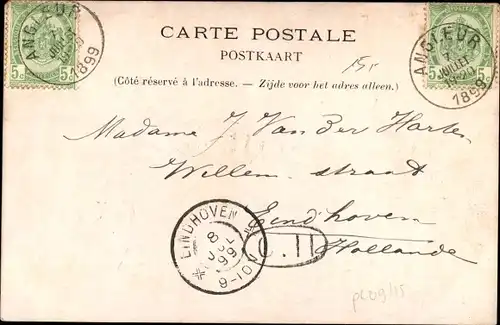 CARTE POSTALE
POSTKAART
(Côté réservé à l'adresse. — Zijde voor het adres alleen.)
ANGLEUR
JUILLET
1899
5c
ANGLEUR
JUILLET
1899
5c
15,-
Madame J. Van Der Harten
Willem straat
Eindhoven
Hollande
EINDHOVEN
8 JUL 99
9-10V
C.II